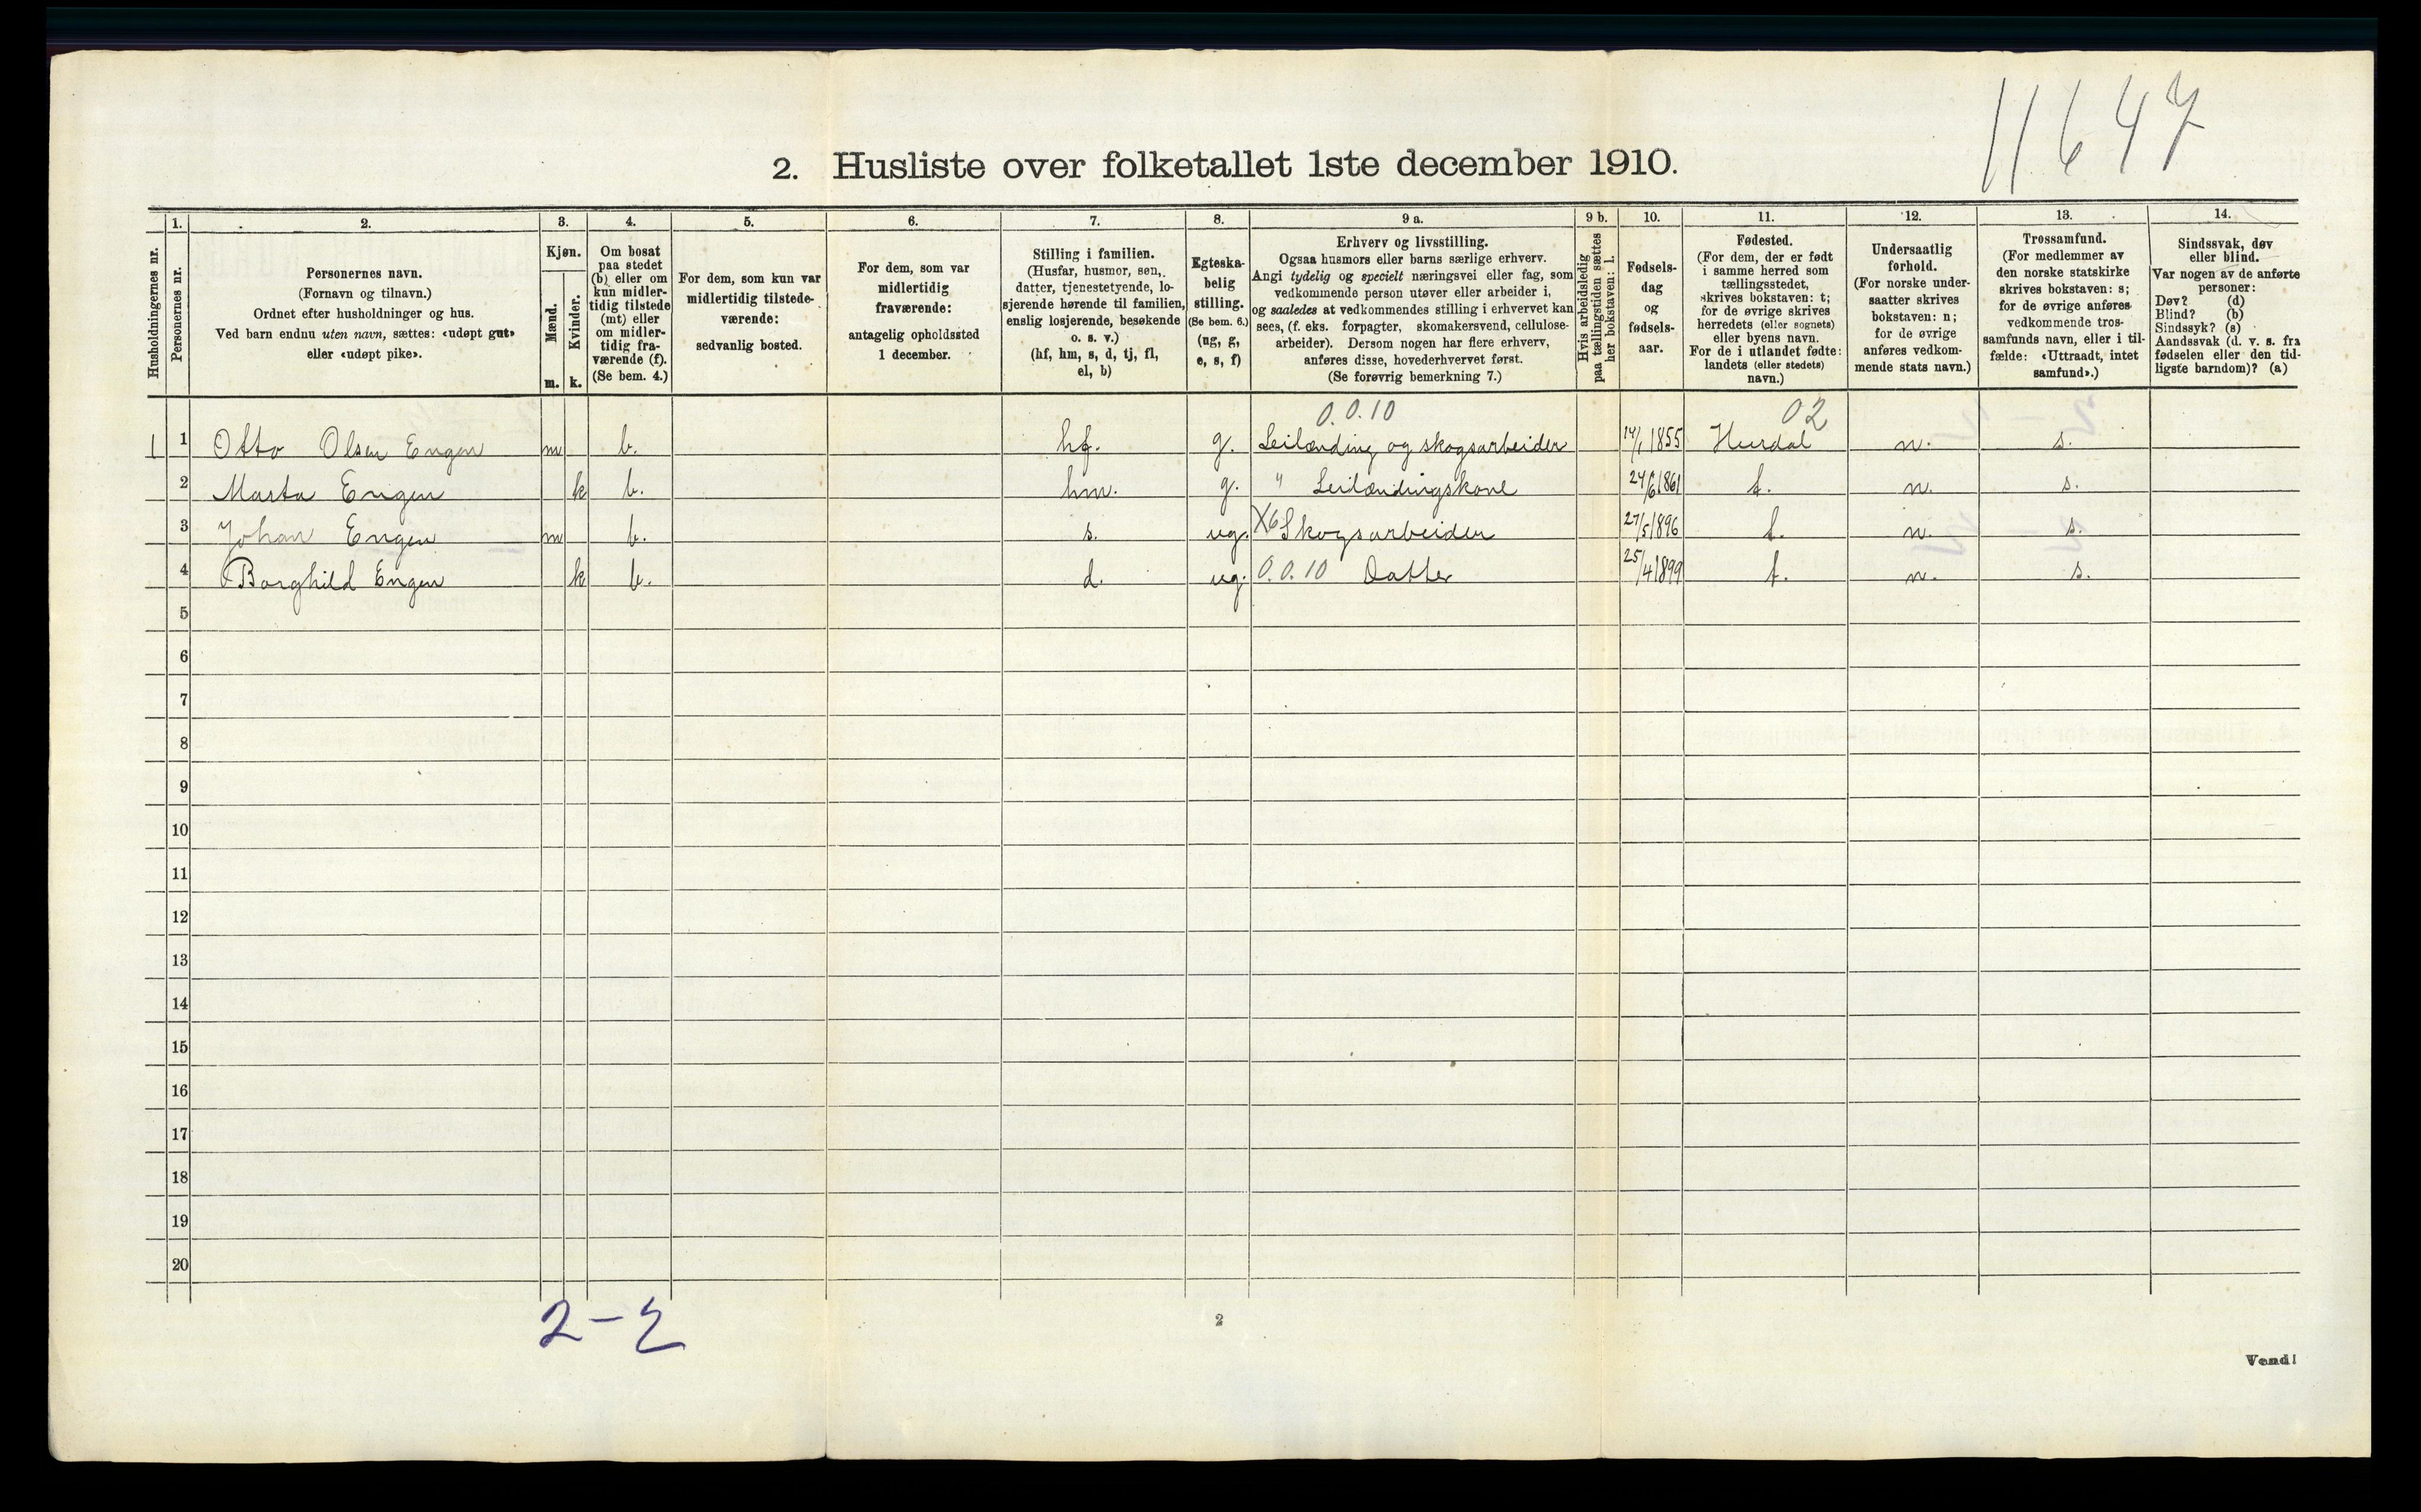 11647
2. Husliste over folketallet 1ste december 1910.
Husholdningernes nr.
1.
Personernes nr.
2.
Personernes navn.
(Fornavn og tilnavn.)
Ordnet efter husholdninger og hus.
Ved barn endnu uten navn, sættes: «udøpt gut»
eller «udøpt pike».
3.
Kjøn.
Mænd.
m.
Kvinder.
k.
4.
Om bosat
paa stedet
(b) eller om
kun midler-
tidig tilstede
(mt) eller
om midler-
tidig fra-
værende (f).
(Se bem. 4.)
5.
For dem, som kun var
midlertidig tilstede-
værende:
sedvanlig bosted.
6.
For dem, som var
midlertidig
fraværende:
antagelig opholdssted
1 december.
7.
Stilling i familien.
(Husfar, husmor, søn,
datter, tjenestetyende, lo-
sjerende hørende til familien,
enslig losjerende, besøkende
o. s. v.)
(hf, hm, s, d, tj, fl,
el, b)
8.
Egteska-
belig
stilling.
(Se bem. 6.)
(ug, g,
e, s, f)
9 a.
Erhverv og livsstilling.
Ogsaa husmors eller barns særlige erhverv.
Angi tydelig og specielt næringsvei eller fag, som
vedkommende person utøver eller arbeider i,
og saaledes at vedkommendes stilling i erhvervet kan
sees, (f. eks. forpagter, skomakersvend, cellulose-
arbeider). Dersom nogen har flere erhverv,
anføres disse, hovederhvervet først.
(Se forøvrig bemerkning 7.)
9 b.
Hvis arbeidsledig
paa tællingstiden sættes
her bokstaven: l.
10.
Fødsels-
dag
og
fødsels-
aar.
11.
Fødested.
(For dem, der er født
i samme herred som
tællingsstedet,
skrives bokstaven: t;
for de øvrige skrives
herredets (eller sognets)
eller byens navn.
For de i utlandet fødte:
landets (eller stedets)
navn.)
12.
Undersaatlig
forhold.
(For norske under-
saatter skrives
bokstaven: n;
for de øvrige
anføres vedkom-
mende stats navn.)
13.
Trossamfund.
(For medlemmer av
den norske statskirke
skrives bokstaven: s;
for de øvrige anføres
vedkommende tros-
samfunds navn, eller i til-
fælde: «Uttraadt, intet
samfund».)
14.
Sindssvak, døv
eller blind.
Var nogen av de anførte
personer:
Døv? (d)
Blind? (b)
Sindssyk? (s)
Aandssvak (d. v. s. fra
fødselen eller den tid-
ligste barndom)? (a)
0.0.10 02
1 1 Otto Olsen Engen m b. hf. g. Leilænding og skogsarbeider 14/1 1855 Hurdal n. s.
2 Marta Engen k b. hm. g. " Leilændingskone 24/6 1861 t. n. s.
3 Johan Engen m b. s. ug. X6 Skogsarbeider 27/5 1896 t. n. s.
4 Borghild Engen k b. d. ug. 0.0.10 Datter 25/4 1899 t. n. s.
5
6
7
8
9
10
11
12
13
14
15
16
17
18
19
20
2-2
2
Vend!